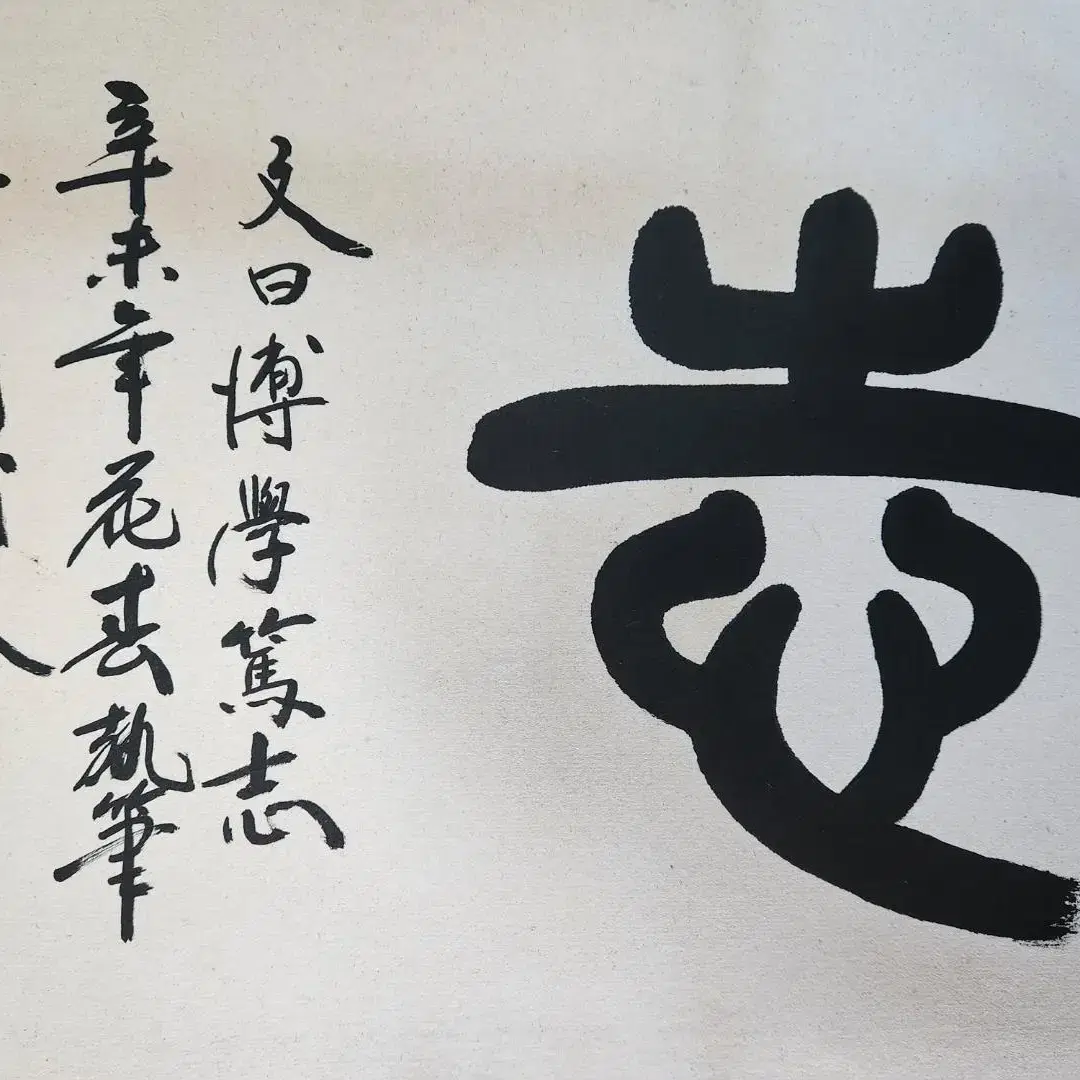 志
文曰博學篤志
辛未年花春執筆